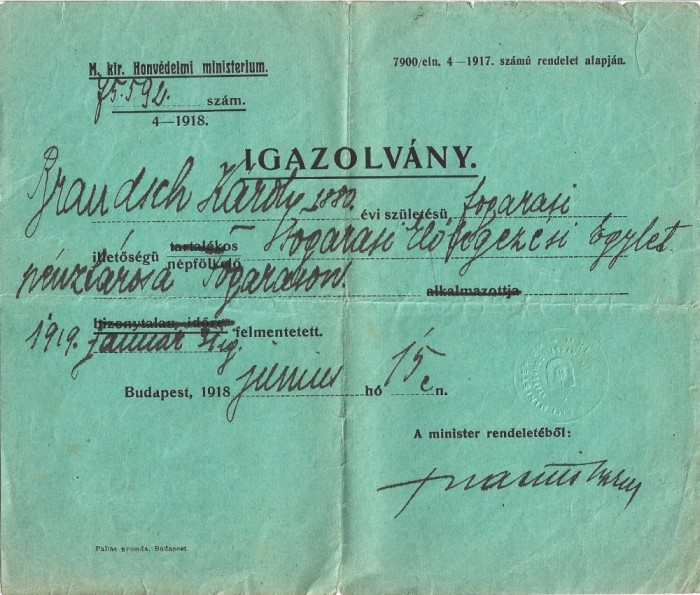 M. kir. Honvédelmi ministerium.
75.592. szám.
4—1918.
7900/eln. 4—1917. számú rendelet alapján.
IGAZOLVÁNY.
Brandsch Károly 1880. évi születésű fogarasi
illetőségű tartalékos népfölkelő Fogarasi Előlegezési Egylet
pénztárosa Fogarason. alkalmazottja
bizonytalan időre felmentetett.
1919. január 31 ig.
Budapest, 1918 június hó 15 én.
A minister rendeletéből:
Pallas nyomda, Budapest